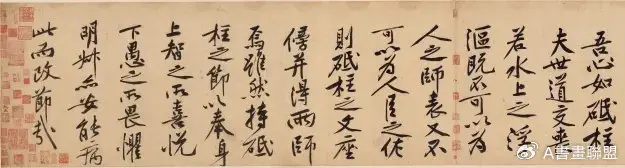 吾心如砥柱
夫世道交喪
若水上之浮
漚既不可以為
人之師表又不
可以為人臣之佐
則砥柱之文座
傍并得兩師
焉雖然持砥
柱之節以奉身
上智之所喜悅
下愚之所畏懼
明叔亦安能病
此而改節哉
@A書畫聯盟